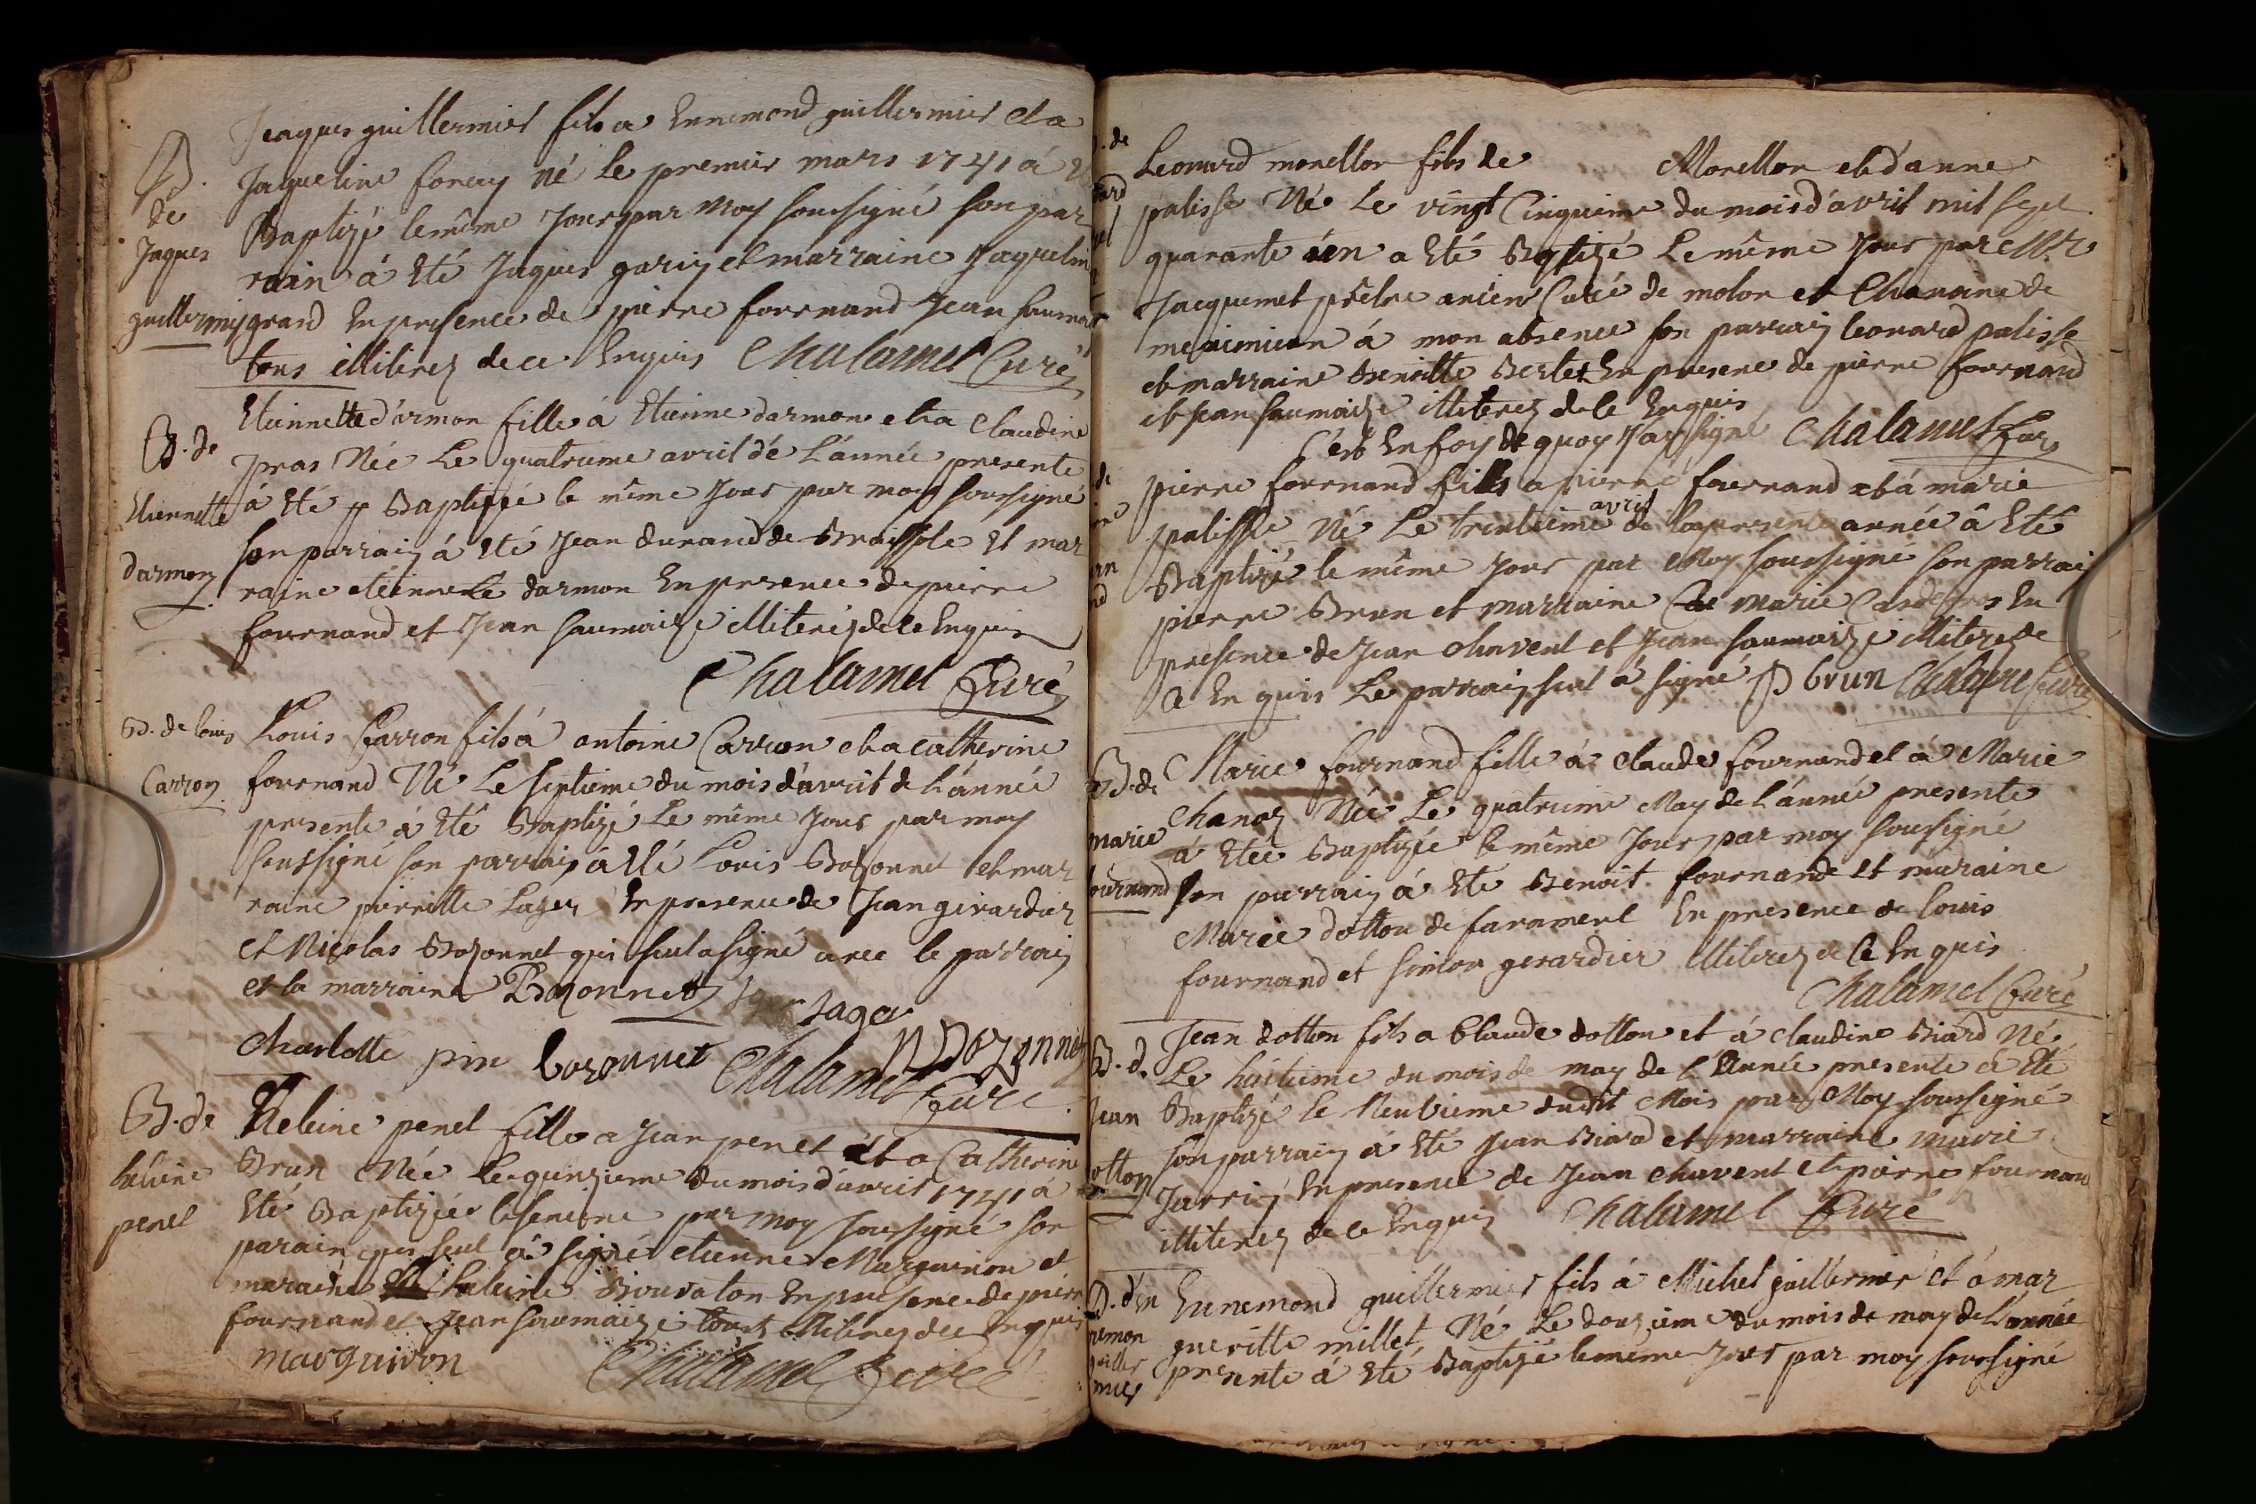 Jeaques guillermier fils a Ennemond guillermier et a
Jaqueline foray né le premier mars 1741 á
B. de Jaques guillermier
Baptizé le même Jour par Moy soussigné son par
rain á Eté Jaques gariy et marraine Jaquelin
grand En presence de pierre fournand Jean saumaize
tous illiterez de ce Enquis Chalamel Curé
B. de Etiennette darmon
Etiennette d'armon fille á Etienne darmon et a Claudine
pras Née Le quatrieme avril dé L'année presente
á Eté Baptizée le même Jour par moy soussigné
son parrain á eté Jean durand de Braissole et mar
raine etiennette darmon En presence de pierre
fournand et Jean saumaize illiterés de ce Enquis
Chalamel Curé
B. de louis Carron
Louis Carron fils á antoine Carron et a catherine
fournand Né Le septieme du mois d'avril de L'année
presente á Eté Baptizé Le même Jour par moy
soussigné son parrain á Eté Louis Bozonnet et mar
raine pierrette Lager En presence de Jean girardier
et Nicolas Bozonnet qui seul a signé avec le parrain
et la marraine Bozonnet Lager
Charlotte pin bozonnet Chalamel N Bozonnet
Curé
B. de heleine penet
Heleine penet fille a Jean penet et a Catherine
Brun Née Le quinzieme du mois d'avril 1741 á
Eté Baptizée par Moy soussigné son
parain qui seul á signé etienne Marguinon et
maraine heleine Bouvaton En presence de pierre
fournand et Jean saumaize tous illiterez de ce Enquis
marguinon Chalamel Curé
Leonard monellon fils de Monellon et d'anne
palisse Né Le vingt Cinquieme du mois d'avril mil sept
quarante un a Eté Baptizé Le même Jour par Mr
Jacquemet prêtre ancien Curé de molon et Chanoine de
meximieux á mon absence son parrain leonard palisse
et marraine Benoitte Berlet En presence de pierre fournand
et Jean saumaize illiterez de ce Enquis
C'est En foy de quoy J'ay signé Chalamel Curé
pierre fournand fils a pierre fournand et á marie
palisse Né Le trentieme avril de la presente année á Eté
Baptizé le même Jour par Moy soussigné son parrain
pierre Brun et marraine marie En
presence de Jean Chavent et Jean saumaize illiterez de
ce Enquis Le parrain seul á signé P brun Chalamel Curé
B. de marie fournand
Marie fournand fille á Claude fournand et á Marie
Chanoz Née Le quatrieme May de L'année presente
á Etée Baptizée le même Jour par moy soussigné
son parrain á Eté Benoit fournand et maraine
Marie dotton de farament En presence de louis
fournand et simeon gerardier illiterez de ce Enquis
Chalamel Curé
B. d. Jean dotton
Jean dotton fils a Claude dotton et á Claudine Biard Né
Le huitieme du mois de may de L'année presente á Eté
Baptizé le Neuvieme dudit Mois par Moy soussigné
son parrain á Eté Jean Biard et marraine marie
Jarriy En presence de Jean Chavent et pierre fournand
illiterez de ce Enquis Chalamel Curé
B. d'En nemon guiller mier
Ennemond guillermier fils á Michel guillermier et á mar
gueritte millet Né Le douzieme du mois de may de L'année
presente á Eté Baptizé le meme Jour par moy soussigné